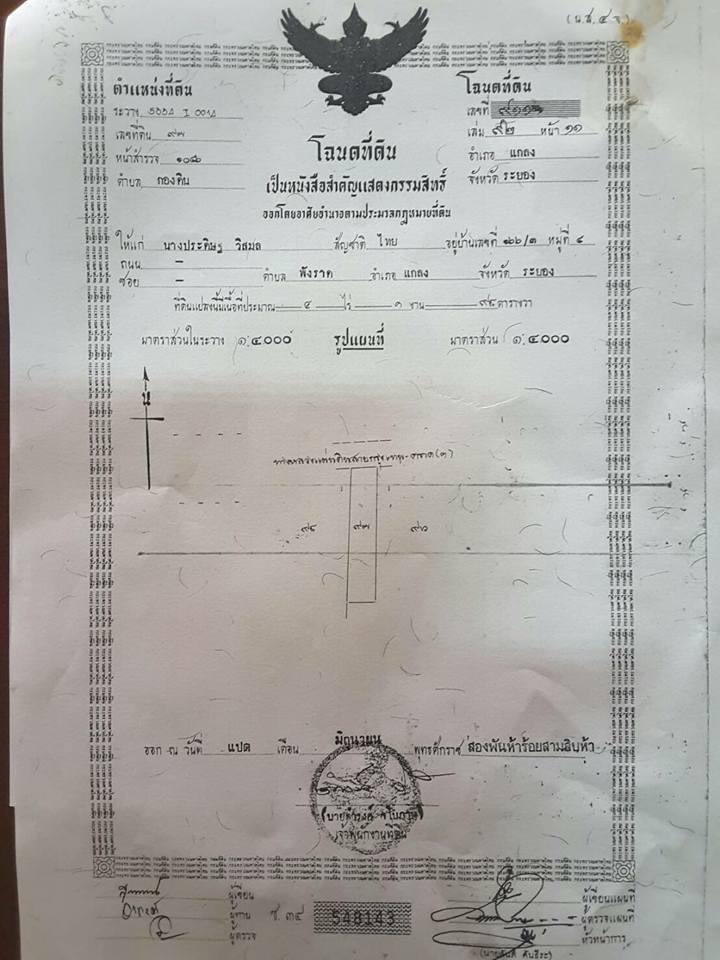 (น.ส.๔ จ.)
ตำแหน่งที่ดิน
ระวาง
เลขที่ดิน ๙๗
หน้าสำรวจ ๑๐๘๐
ตำบล กองดิน
โฉนดที่ดิน
เลขที่
เล่ม ๙๒ หน้า ๑๑
อำเภอ แกลง
จังหวัด ระยอง
โฉนดที่ดิน
เป็นหนังสือสำคัญแสดงกรรมสิทธิ์
ออกโดยอาศัยอำนาจตามประมวลกฎหมายที่ดิน
ให้แก่ นางประดิษฐ วิสมล สัญชาติ ไทย อยู่บ้านเลขที่ ๑๖๖/๓ หมู่ที่ ๔
ถนน –
ซอย – ตำบล พังราด อำเภอ แกลง จังหวัด ระยอง
ที่ดินแปลงนี้มีเนื้อที่ประมาณ ๔ ไร่ ๓ งาน ๙๔ ตารางวา
มาตราส่วนในระวาง ๑:๔๐๐๐ รูปแผนที่ มาตราส่วน ๑:๔๐๐๐
น
๙๘ ๙๗ ๙๖
ออก ณ วันที่ แปด เดือน มิถุนายน พุทธศักราช สองพันห้าร้อยสามสิบห้า
เจ้าพนักงานที่ดิน
ผู้เขียน
ผู้ทาน
ผู้ตรวจ
ช.๓๙ 548143
ผู้เขียนแผนที่
ผู้ตรวจแผนที่
หัวหน้าการ